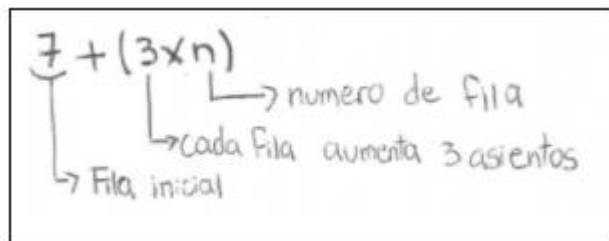 7 + (3xn)
numero de fila
cada fila aumenta 3 asientos
Fila inicial